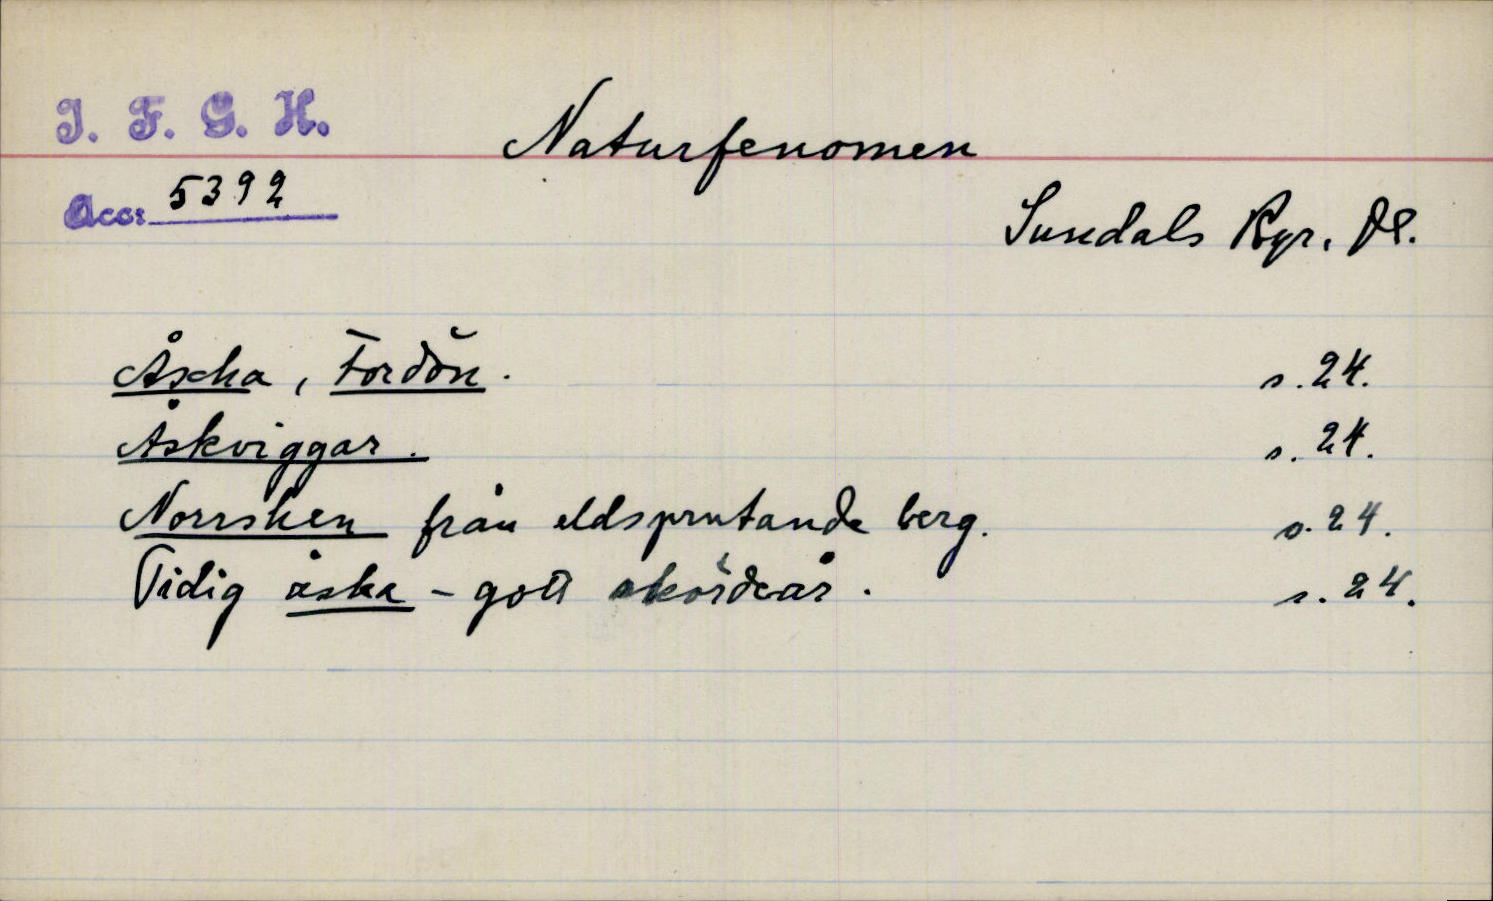 I. F. G. H.
Naturfenomen
Acc: 5392
Sundals Ryr. Dl.
Åska, Tordön.
s. 24.
Åskviggar.
s. 24.
Norrsken från eldsprutande berg.
s. 24.
Tidig åska - gott skördeår.
s. 24.